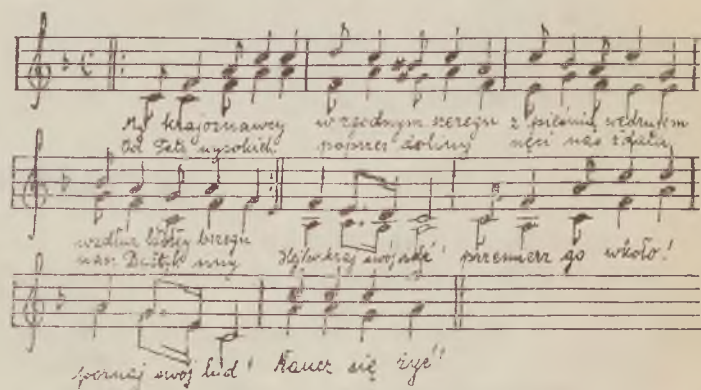 My krajoznawcy w zgodnym szeregu z pieśnią wędrujem
Od Tatr wysokich poprzez doliny nęci nas zdala
wzdłuż brzegu
nas Bałtyk
Hej! w kraj swój idź! przemierz go wkoło!
poznaj swój lud! Naucz się żyć!